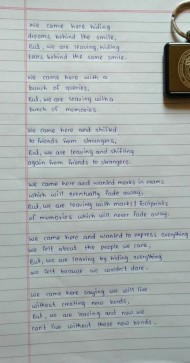 We came here hiding
dreams behind the smile,
But, we are leaving hiding
tears behind the same smile.
We came here with a
bunch of worries,
But, we are leaving with a
bunch of memories.
We came here and shifted
to friends from strangers,
But, we are leaving and shifting
again from friends to strangers.
We came here and wanted marks in exams
which will eventually fade away;
But, we are leaving with marks/footprints
of memories which will never fade away.
We came here and wanted to express everything
we felt about the people we care,
But, we are leaving by hiding everything
we felt because we couldn't dare.
We came here saying we will live
without creating new bonds,
But, we are leaving and now we
can't live without those new bonds.